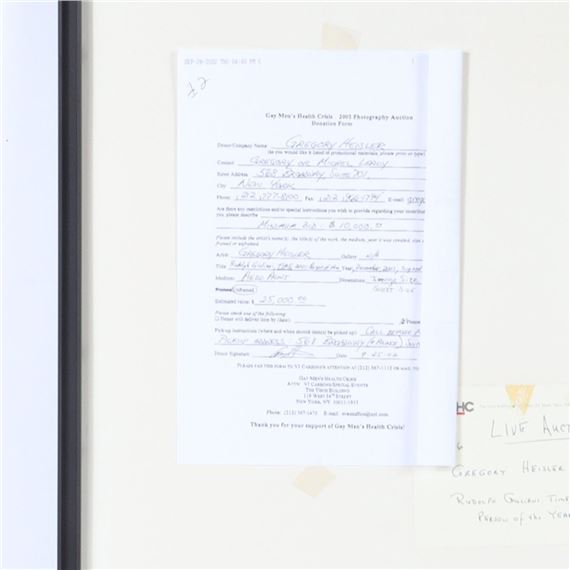 SEP-26-2002 THU 04:40 PM
#2
Gay Men's Health Crisis 2002 Photography Auction
Donation Form
Donor/Company Name GREGORY HEISLER
(as you would like it listed in promotional materials, please print or type)
Contact GREGORY OR MICHEL LEROY
Street Address 568 BROADWAY, SUITE 701,
City NEW YORK
Phone Fax E-mail
Are there any restrictions and/or special instructions you wish to provide regarding your
you, please describe
MINIMUM BID: $10,000.00
Please include the artist's name(s), the title(s) of the work, the medium, year it was created, size
framed or unframed.
Artist GREGORY HEISLER Gallery N/A
Title Rudolph Giuliani, TIME 2001 Person of the Year, December, 2001, Signed
Medium Dimensions
Framed Unframed
Estimated value: $ 25,000.00
Please check one of the following:
Donor will deliver item by (date) Please
Picking instructions (where and when should item(s) be picked up): CALL BEFORE
PICKUP ADDRESS: 568 BROADWAY (@ PRINCE)
Donor Signature Date 9.25.02
PLEASE FAX THIS FORM TO VJ CARBONE'S ATTENTION AT OR MAIL TO:
GAY MEN'S HEALTH CRISIS
ATTN: VJ CARBONE/SPECIAL EVENTS
THE TISCH BUILDING
119 WEST 24TH STREET
NEW YORK, NY 10011-1913
Phone: E-mail:
Thank you for your support of Gay Men's Health Crisis!
HC
LIVE AUCT
GREGORY HEISLER
RUDOLPH GIULIANI TIME
PERSON of the YEA